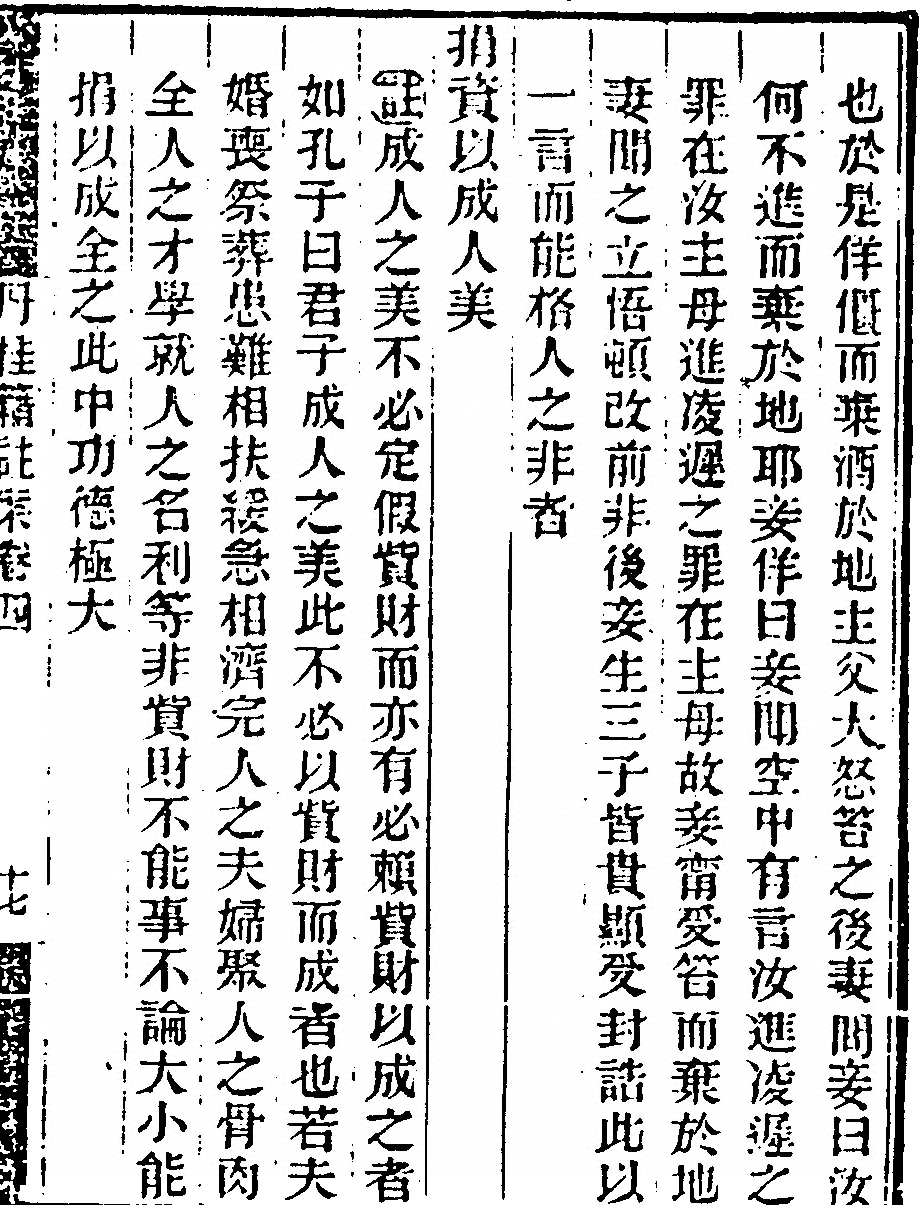 也於是佯僵而棄酒於地主父大怒笞之後妻問妾曰汝
何不進而棄於地耶妾佯曰妾聞空中有言汝進凌遲之
罪在汝主母進凌遲之罪在主母故妾甯受笞而棄於地
妻聞之立悟頓改前非後妾生三子皆貴顯受封誥此以
一言而能格人之非者
捐資以成人美
註成人之美不必定假貲財而亦有必賴貲財以成之者
如孔子曰君子成人之美此不必以貲財而成者也若夫
婚喪祭葬患難相扶緩急相濟完人之夫婦聚人之骨肉
全人之才學就人之名利等非貲財不能事不論大小能
捐以成全之此中功德極大
丹桂籍註案卷四
十七